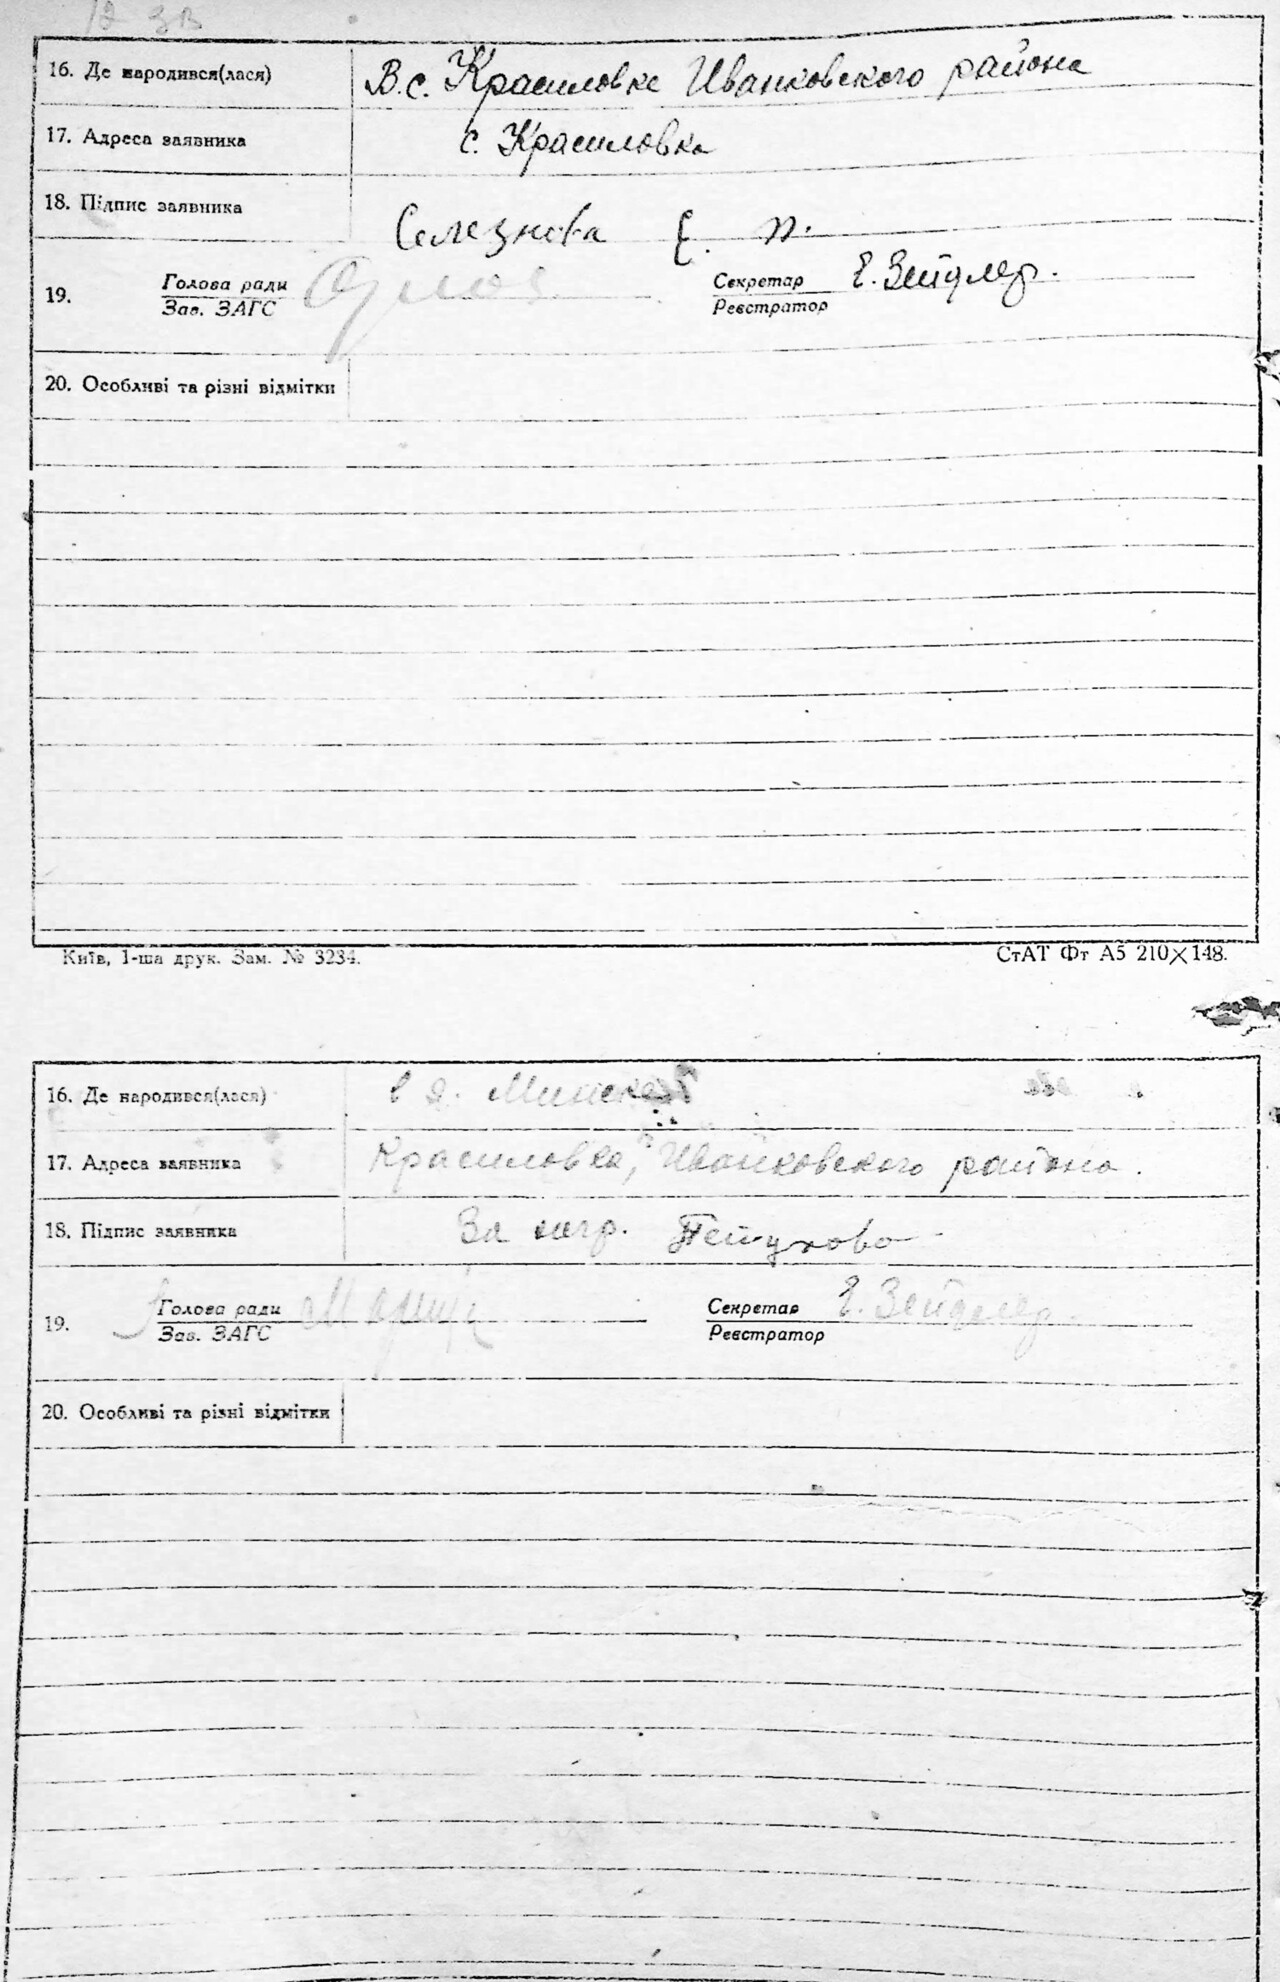 12 зв
16. Де народився(лася) В с. Красиловке Иванковского района
17. Адреса заявника с. Красиловка
18. Підпис заявника Селезнева Е. П.
19. Голова ради Секретар Е. Зейдлер.
Зав. ЗАГС Реєстратор
20. Особливі та різні відмітки
Київ, 1-ша друк. Зам. № 3234. СтАТ Фт А5 210×148.
16. Де народився(лася) в д.
17. Адреса заявника Красиловка, Иванковского района.
18. Підпис заявника За негр. Петухова
19. Голова ради Секретар Е. Зейдлер.
Зав. ЗАГС Реєстратор
20. Особливі та різні відмітки